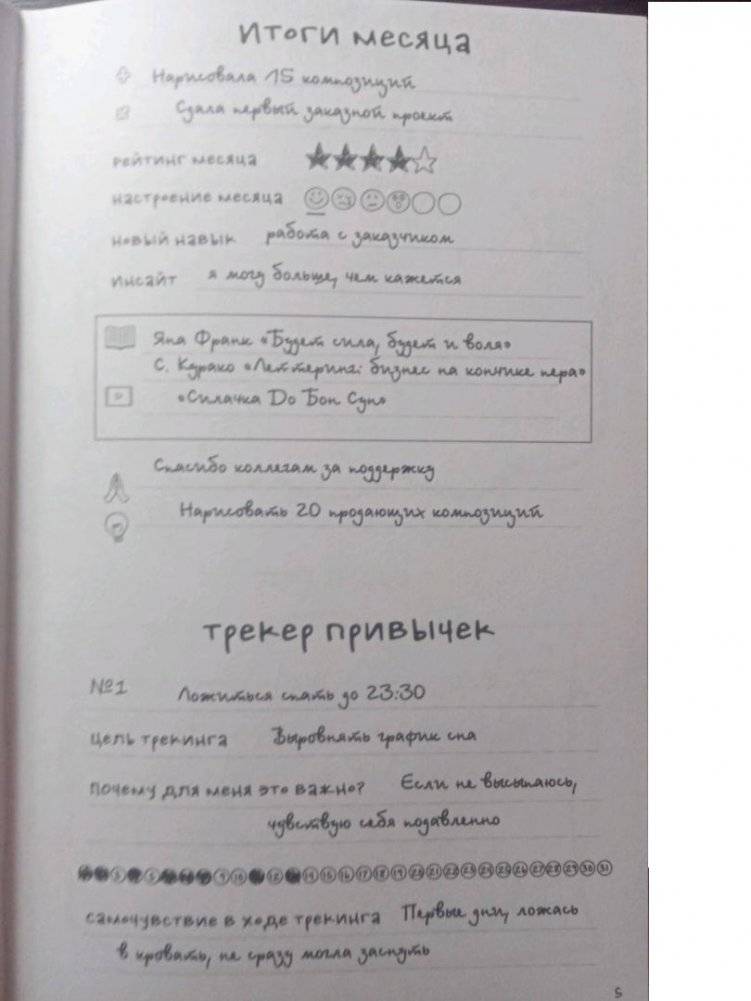 итоги месяца
Нарисовала 15 композиций
Сдала первый заказной проект
рейтинг месяца
настроение месяца
новый навык работа с заказчиком
инсайт я могу больше, чем кажется
Яна Франк «Будет сила, будет и воля»
С. Курако «Леттеринг: бизнес на кончике пера»
«Силачка До Бон Сун»
Спасибо коллегам за поддержку
Нарисовать 20 продающих композиций
трекер привычек
№1 Ложиться спать до 23:30
цель трекинга Выровнять график сна
почему для меня это важно? Если не высыпаюсь,
чувствую себя подавленно
3 5 9 10 12 14 15 16 17 18 19 20 21 22 23 24 25 26 27 28 29 30 31
самочувствие в ходе трекинга Первые дни, ложась
в кровать, не сразу могла заснуть
5